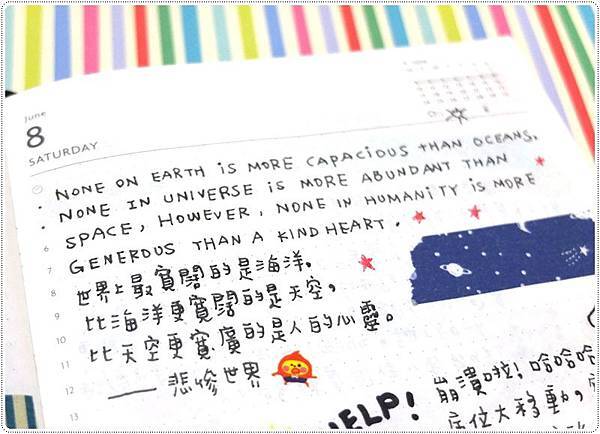 June
8
SATURDAY
NONE ON EARTH IS MORE CAPACIOUS THAN OCEANS.
NONE IN UNIVERSE IS MORE ABUNDANT THAN
SPACE, HOWEVER, NONE IN HUMANITY IS MORE
GENEROUS THAN A KIND HEART.
世界上最寬闊的是海洋,
比海洋更寬闊的是天空,
比天空更寬廣的是人的心靈。
—— 悲慘世界
6
7
8
9
10
11
12
13
HELP!
崩潰啦!哈哈哈
座位大移動,